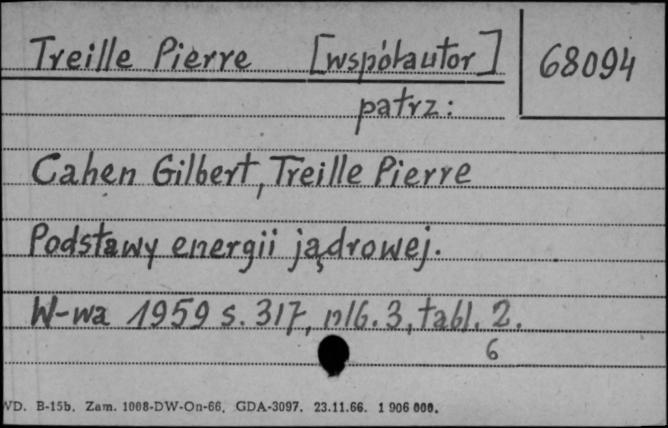 Treille Pierre [współautor] 68094
patrz:
Cahen Gilbert, Treille Pierre
Podstawy energii jądrowej.
W-wa 1959 s. 317, nlb. 3, tabl. 2.
6
WD. B-15b. Zam. 1008-DW-On-66. GDA-3097. 23.11.66. 1 906 000.